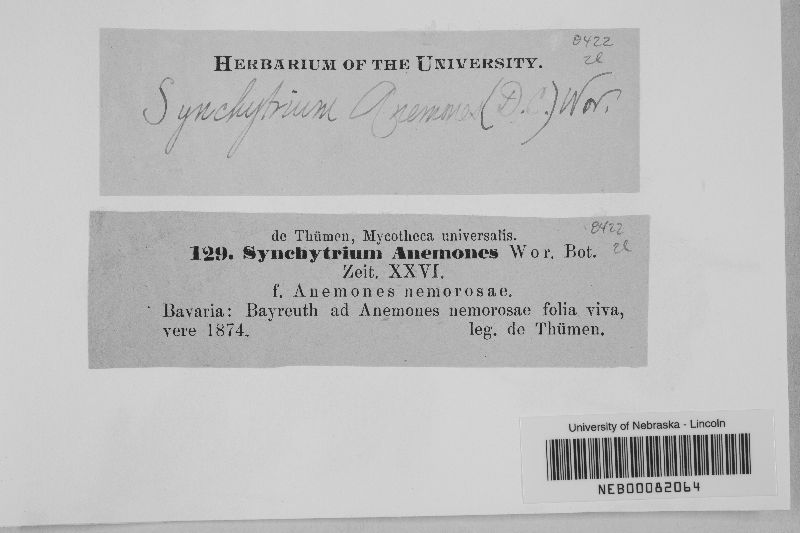 8422
zl
HERBARIUM OF THE UNIVERSITY.
Synchytrium Anemones (D.C.) Wor.
8422
zl
de Thümen, Mycotheca universalis.
129. Synchytrium Anemones Wor. Bot.
Zeit. XXVI.
f. Anemones nemorosae.
Bavaria: Bayreuth ad Anemones nemorosae folia viva,
vere 1874. leg. de Thümen.
University of Nebraska - Lincoln
NEB00082064